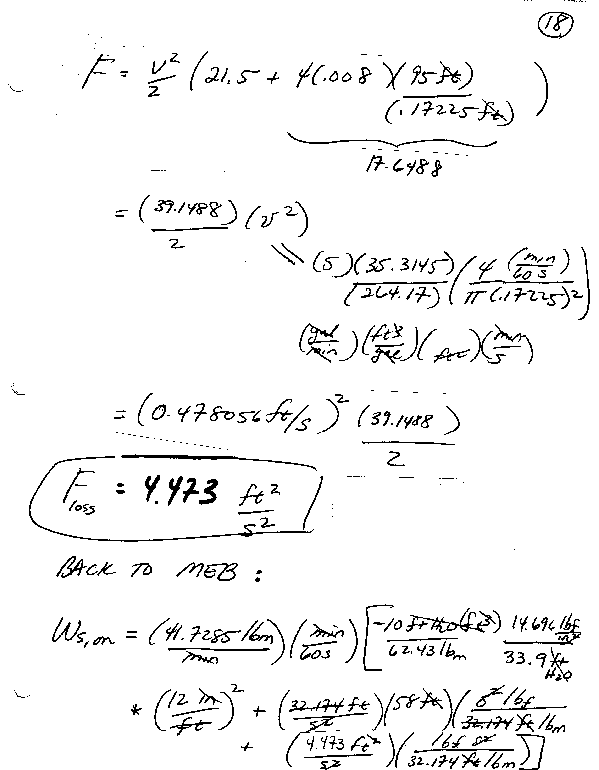 18
F = v²/2 (21.5 + 4(.008)(95 ft)/(.17225 ft))
17.6488
= (39.1488)/2 (v²)
(5)(35.3145)/(264.17) (4 (min/60 s)/π(.17225)²)
(gal/min)(ft3/gal)( /ft2)(min/s)
= (0.478056 ft/s)² (39.1488)/2
F loss = 4.473 ft²/s²
BACK TO MEB :
Ws,on = (41.7285 lbm/min)(min/60s)[-10 ft H2O (ft3)/62.43 lbm 14.696 lbf/in²/33.9 ft H2O
* (12 in/ft)² + (32.174 ft/s²)(58 ft)(s² lbf/32.174 ft lbm)
+ (4.473 ft²/s²)(lbf s²/32.174 ft lbm)]